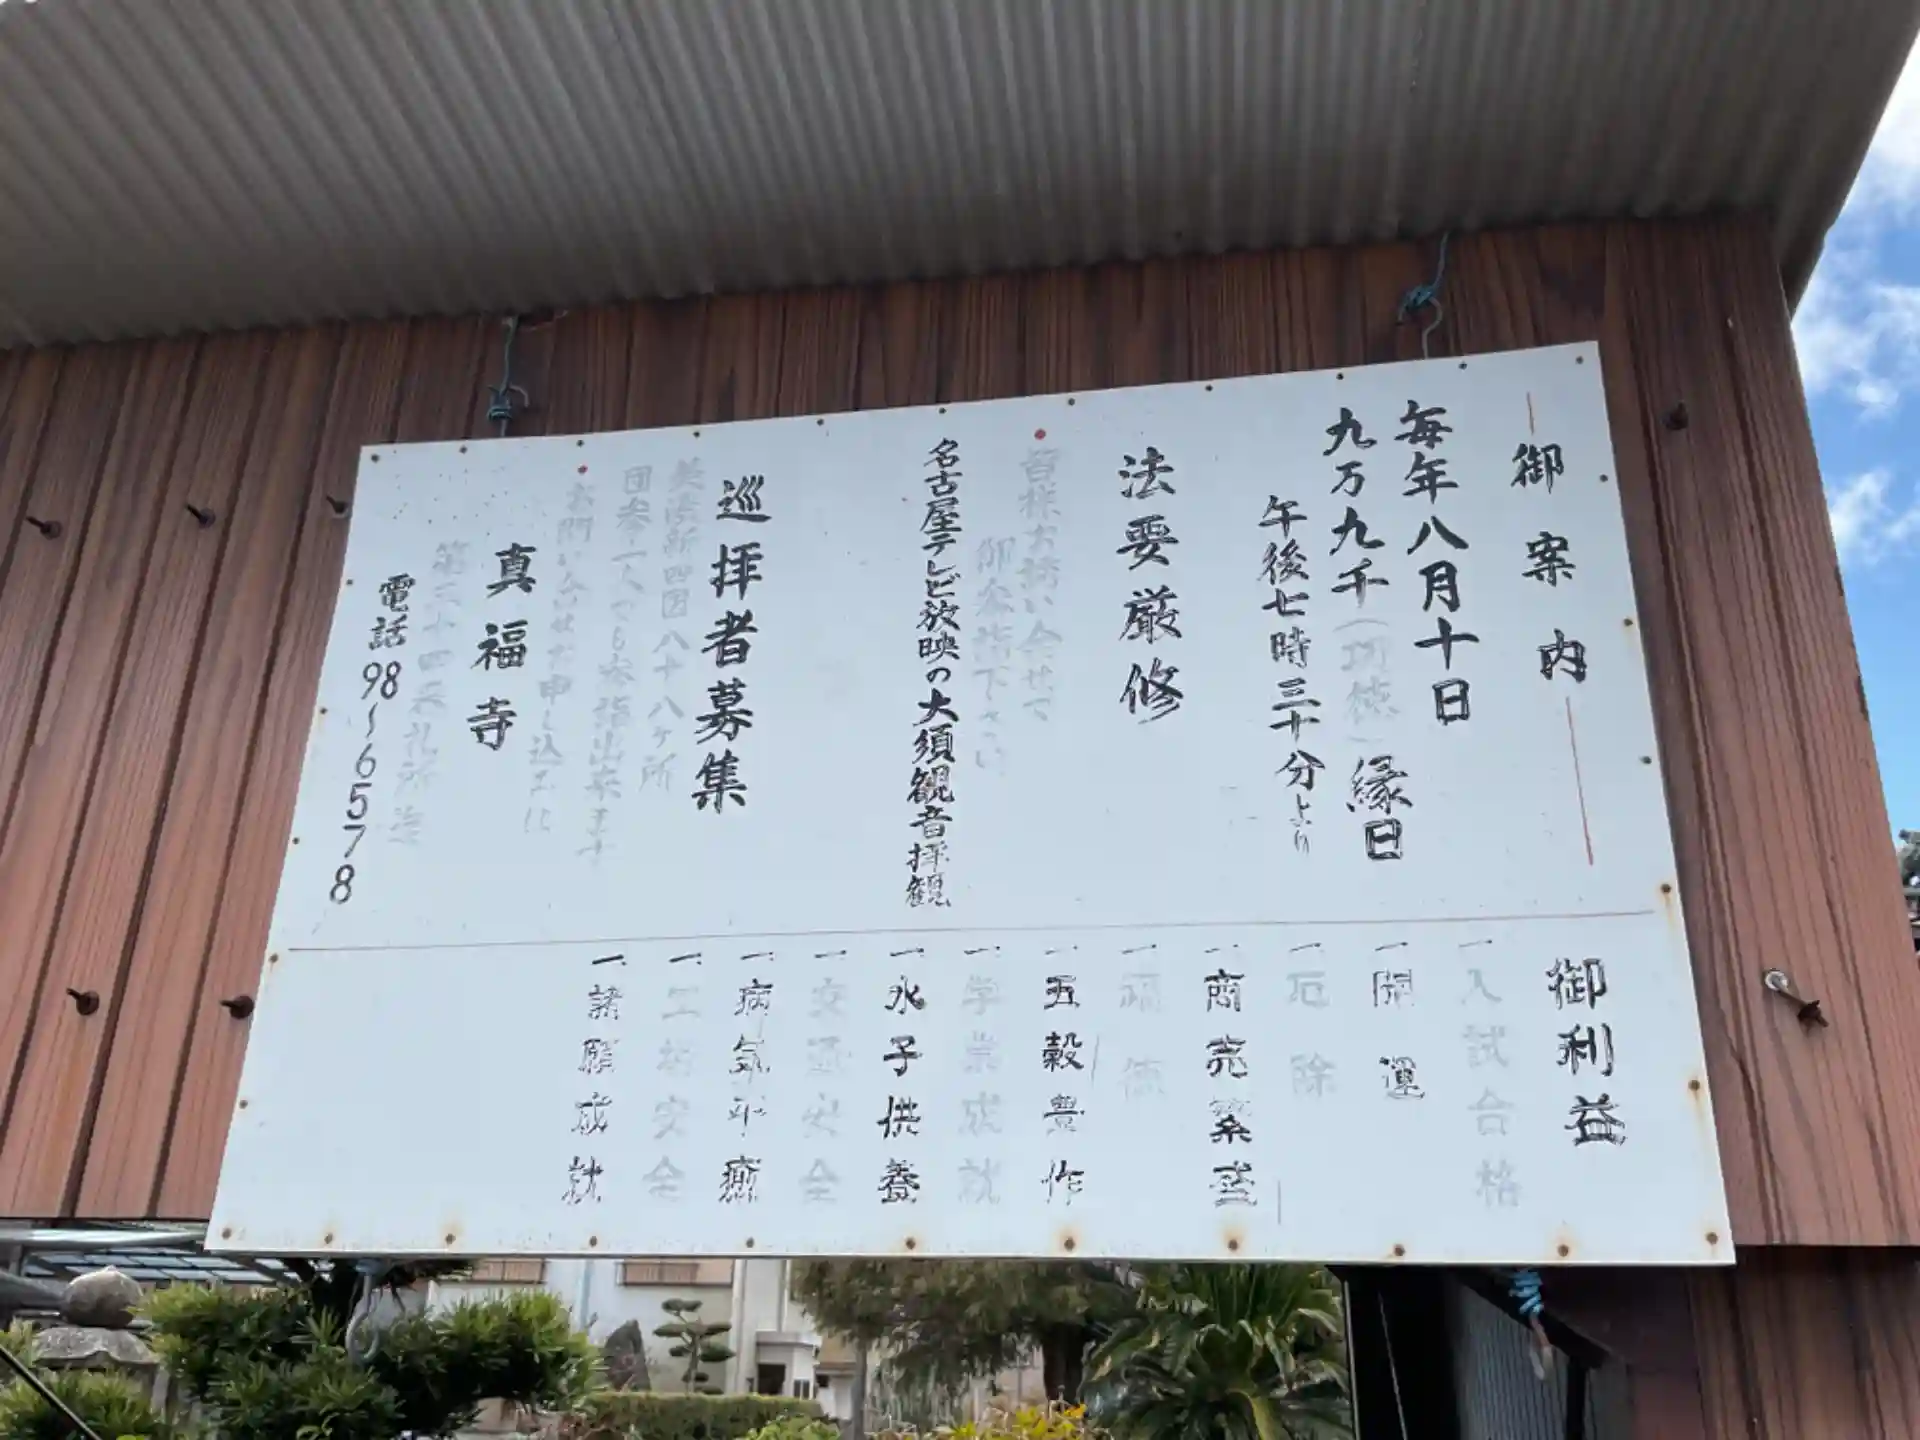 御案内
毎年八月十日
九万九千(功徳)縁日
午後七時三十分より
法要厳修
皆様お誘い合せで
御参詣下さい
名古屋テレビ放映の大須観音拝観
巡拝者募集
美濃新四国八十八ヶ所
団参・一人でも参詣出来ます
お問い合せお申し込みは
真福寺
第三十四番札所
電話98〜6578
御利益
一入試合格
一開運
一厄除
一商売繁盛
一福徳
一五穀豊作
一学業成就
一水子供養
一交通安全
一病気平癒
一工場安全
一諸願成就